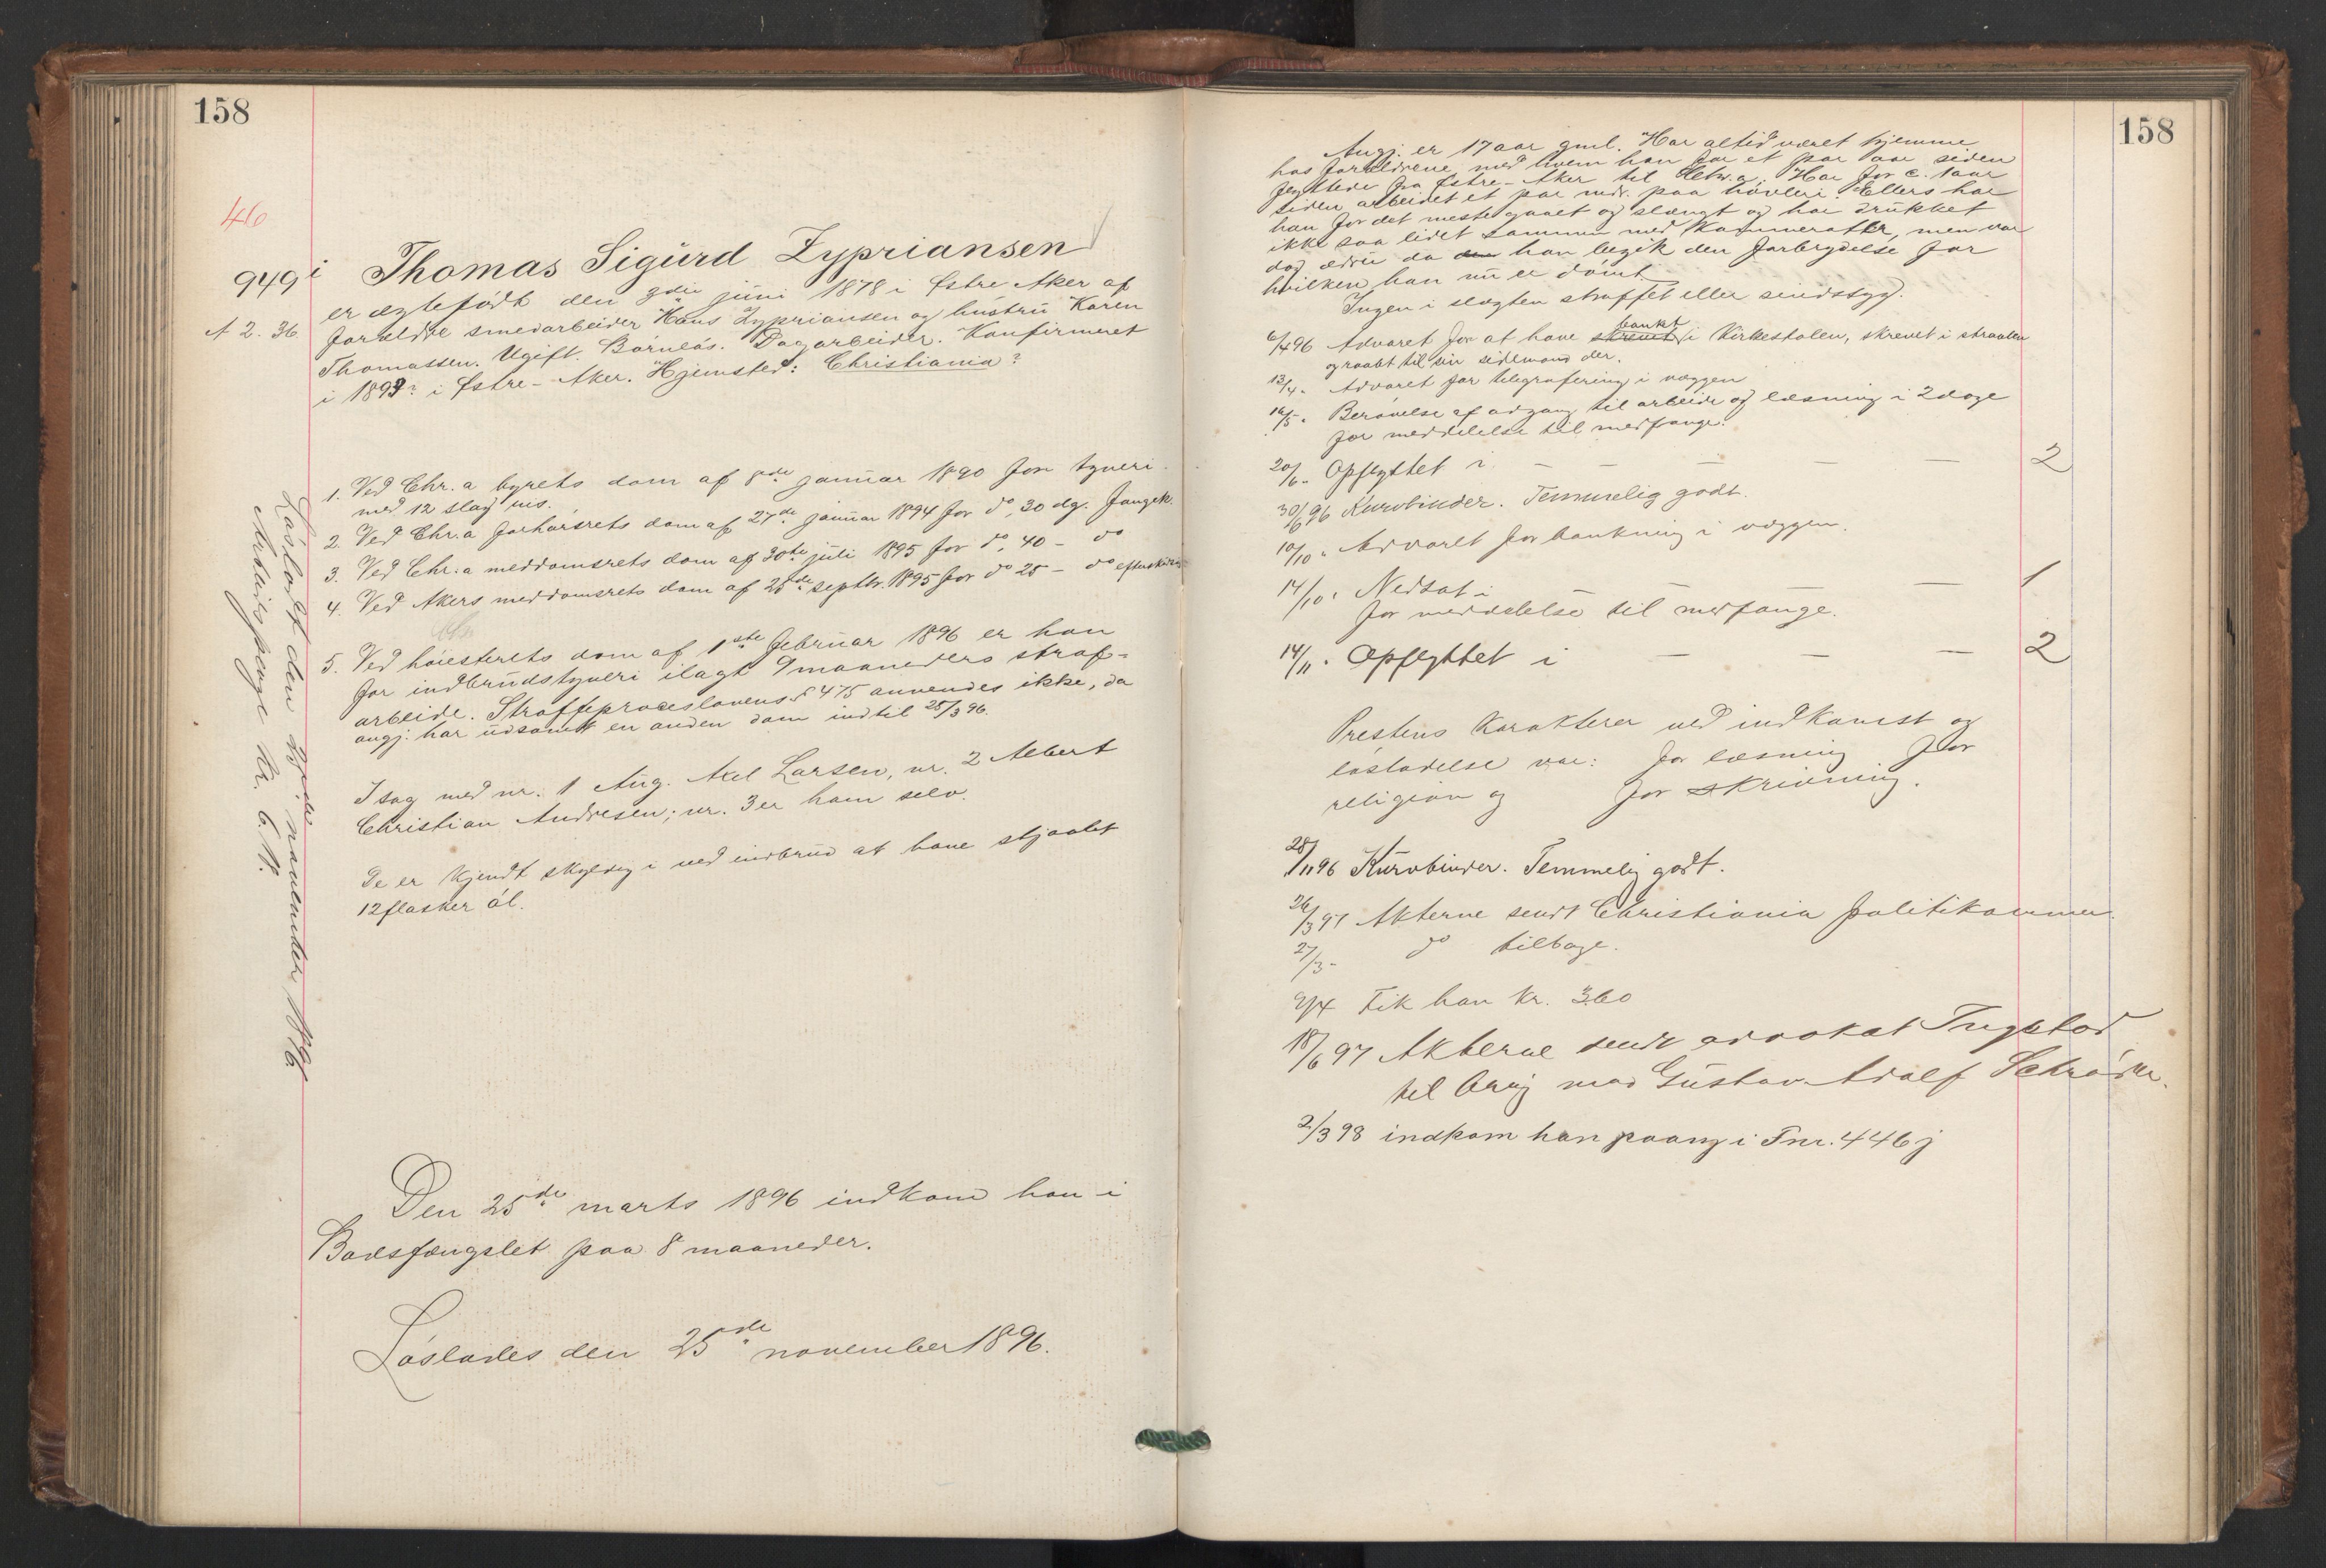 158
46
949 i Thomas Sigurd Zypriansen
A 2. 36.
er ægtefødt den 9die juni 1878 i Østre Aker af
forældre smedarbeider Hans Zypriansen og hustru Karen
Thomassen. Ugift. Barnløs. Dagarbeider. Konfirmeret
i 1893? i Østre-Aker. Hjemsted: Christiania?
1. Ved Chr.a byrets dom af 8de januar 1890 for tyveri
med 12 slag ris.
2. Ved Chr.a forhørsrets dom af 27de januar 1894 for do, 30 dg. fængsl.
3. Ved Chr.a meddomsrets dom af 30te juli 1895 for do, 40 – do
4. Ved Akers meddomsrets dom af 25de septbr. 1895 for do 25 – do
5. Ved høiesterets dom af 1ste februar 1896 er han
for indbrudstyveri ilagt 9 maaneders straf-
arbeide. Straffeproceslovens § 475 anvendes ikke, da
angj. har udsonet en anden dom indtil 25/3 96.
I sag med nr. 1 Aug. Axel Larsen, nr. 2 Albert
Christian Andresen; nr. 3 er ham selv.
De er kjendt skyldig i ved indbrud at have stjaalet
12 flasker øl.
Den 25de marts 1896 indkom han i
Bodsfængslet paa 8 maaneder.
Løslades den 25de november 1896.
Løsladt den 25de november 1896.
Arbeidspenge kr. 6.
158
Angj. er 17 aar gml. Har altid været hjemme
hos forældrene, med hvem han for et par aar siden
flyttede fra Østre-Aker til Chr.a. Har for c. 1 aar
siden arbeidet et par mdr. paa høvleri. Ellers har
han for det meste gaaet og slængt og har drukket
ikke saa lidet sammen med kammerater, men var
dog ædru da han begik den forbrydelse for
hvilken han nu er dømt.
Ingen i slægten straffet eller sindssyg.
6/4 96 Advaret for at have skrevet banket i kirkestolen, skrevet i straalen
og raabt til sin sidemand der.
13/4 " Advaret for telegrafering i væggen
16/5 " Berøvelse af adgang til arbeide og læsning i 2 dage
for meddelelse til medfange.
20/6 " Opflyttet i — — — — — 2
30/6 96 Kurvbinder. Temmelig godt.
10/10 " Advaret for bankning i væggen.
14/10 " Nedsat i — — — 1
for meddelelse til medfange.
14/11 " Opflyttet i — — — 2
Prestens karakterer ved indkomst og
løsladelse var: for læsning for
religion og for skrivning.
25/11 96 Kurvbinder. Temmelig godt.
26/3 97 Akterne sendt Christiania politikammer.
27/3 - do tilbage.
9/4 Fik han kr. 3.60
18/6 97 Akterne sendt advokat
til brug mod Gustav Adolf Schrøder.
2/3 98 indkom han paany i Fnr. 446 j